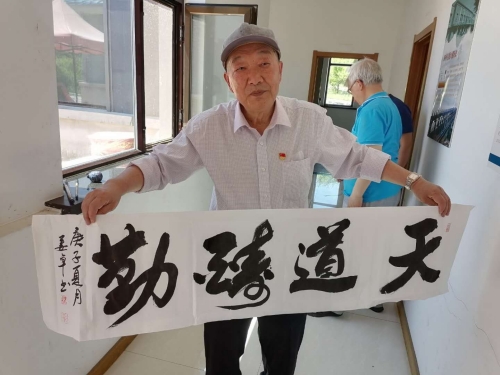 天道醻勤
庚子夏月
姜卓书